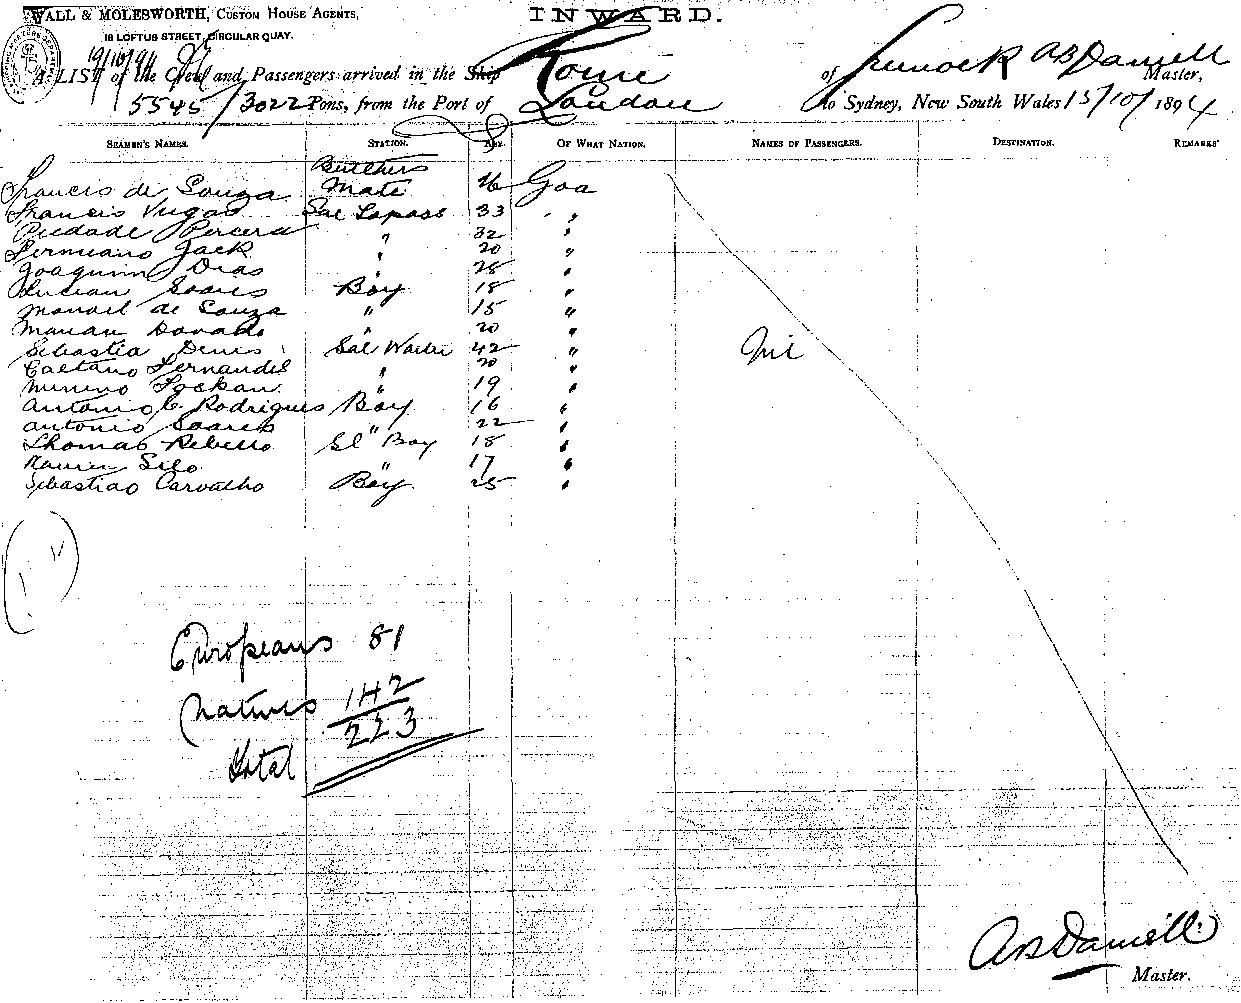 WALL & MOLESWORTH, CUSTOM HOUSE AGENTS,
INWARD.
18 LOFTUS STREET, CIRCULAR QUAY.
19/10/94
A LIST of the Crew and Passengers arrived in the Ship Rome of Greenock AB Daniell Master,
5545/3022 Tons, from the Port of London to Sydney, New South Wales 15/10/1894
SEAMEN'S NAMES. STATION. AGE. OF WHAT NATION. NAMES OF PASSENGERS. DESTINATION. REMARKS
Butchers
Francis de Souza Mate 26 Goa
Francis Vugas Sal Lapass 33 "
Piedade Percera " 32 "
Jack " 20 "
Joaquim Dias " 28 "
Lucian Soares Boy 18 "
Manoel de Souza " 15 "
" 20 "
Sebastia Denis Sal Waiter 42 " Nil
Caetano Fernandes " 20 "
" 19 "
Antonio C. Rodrigues Boy 16 "
Antonio Soares " 22 "
Thomas Rebello Sl Boy 18 "
Xavier Silo " 17 "
Sebastiao Carvalho Boy 25 "
Europeans 81
Natives 142
223
Total
ABDaniell
Master.